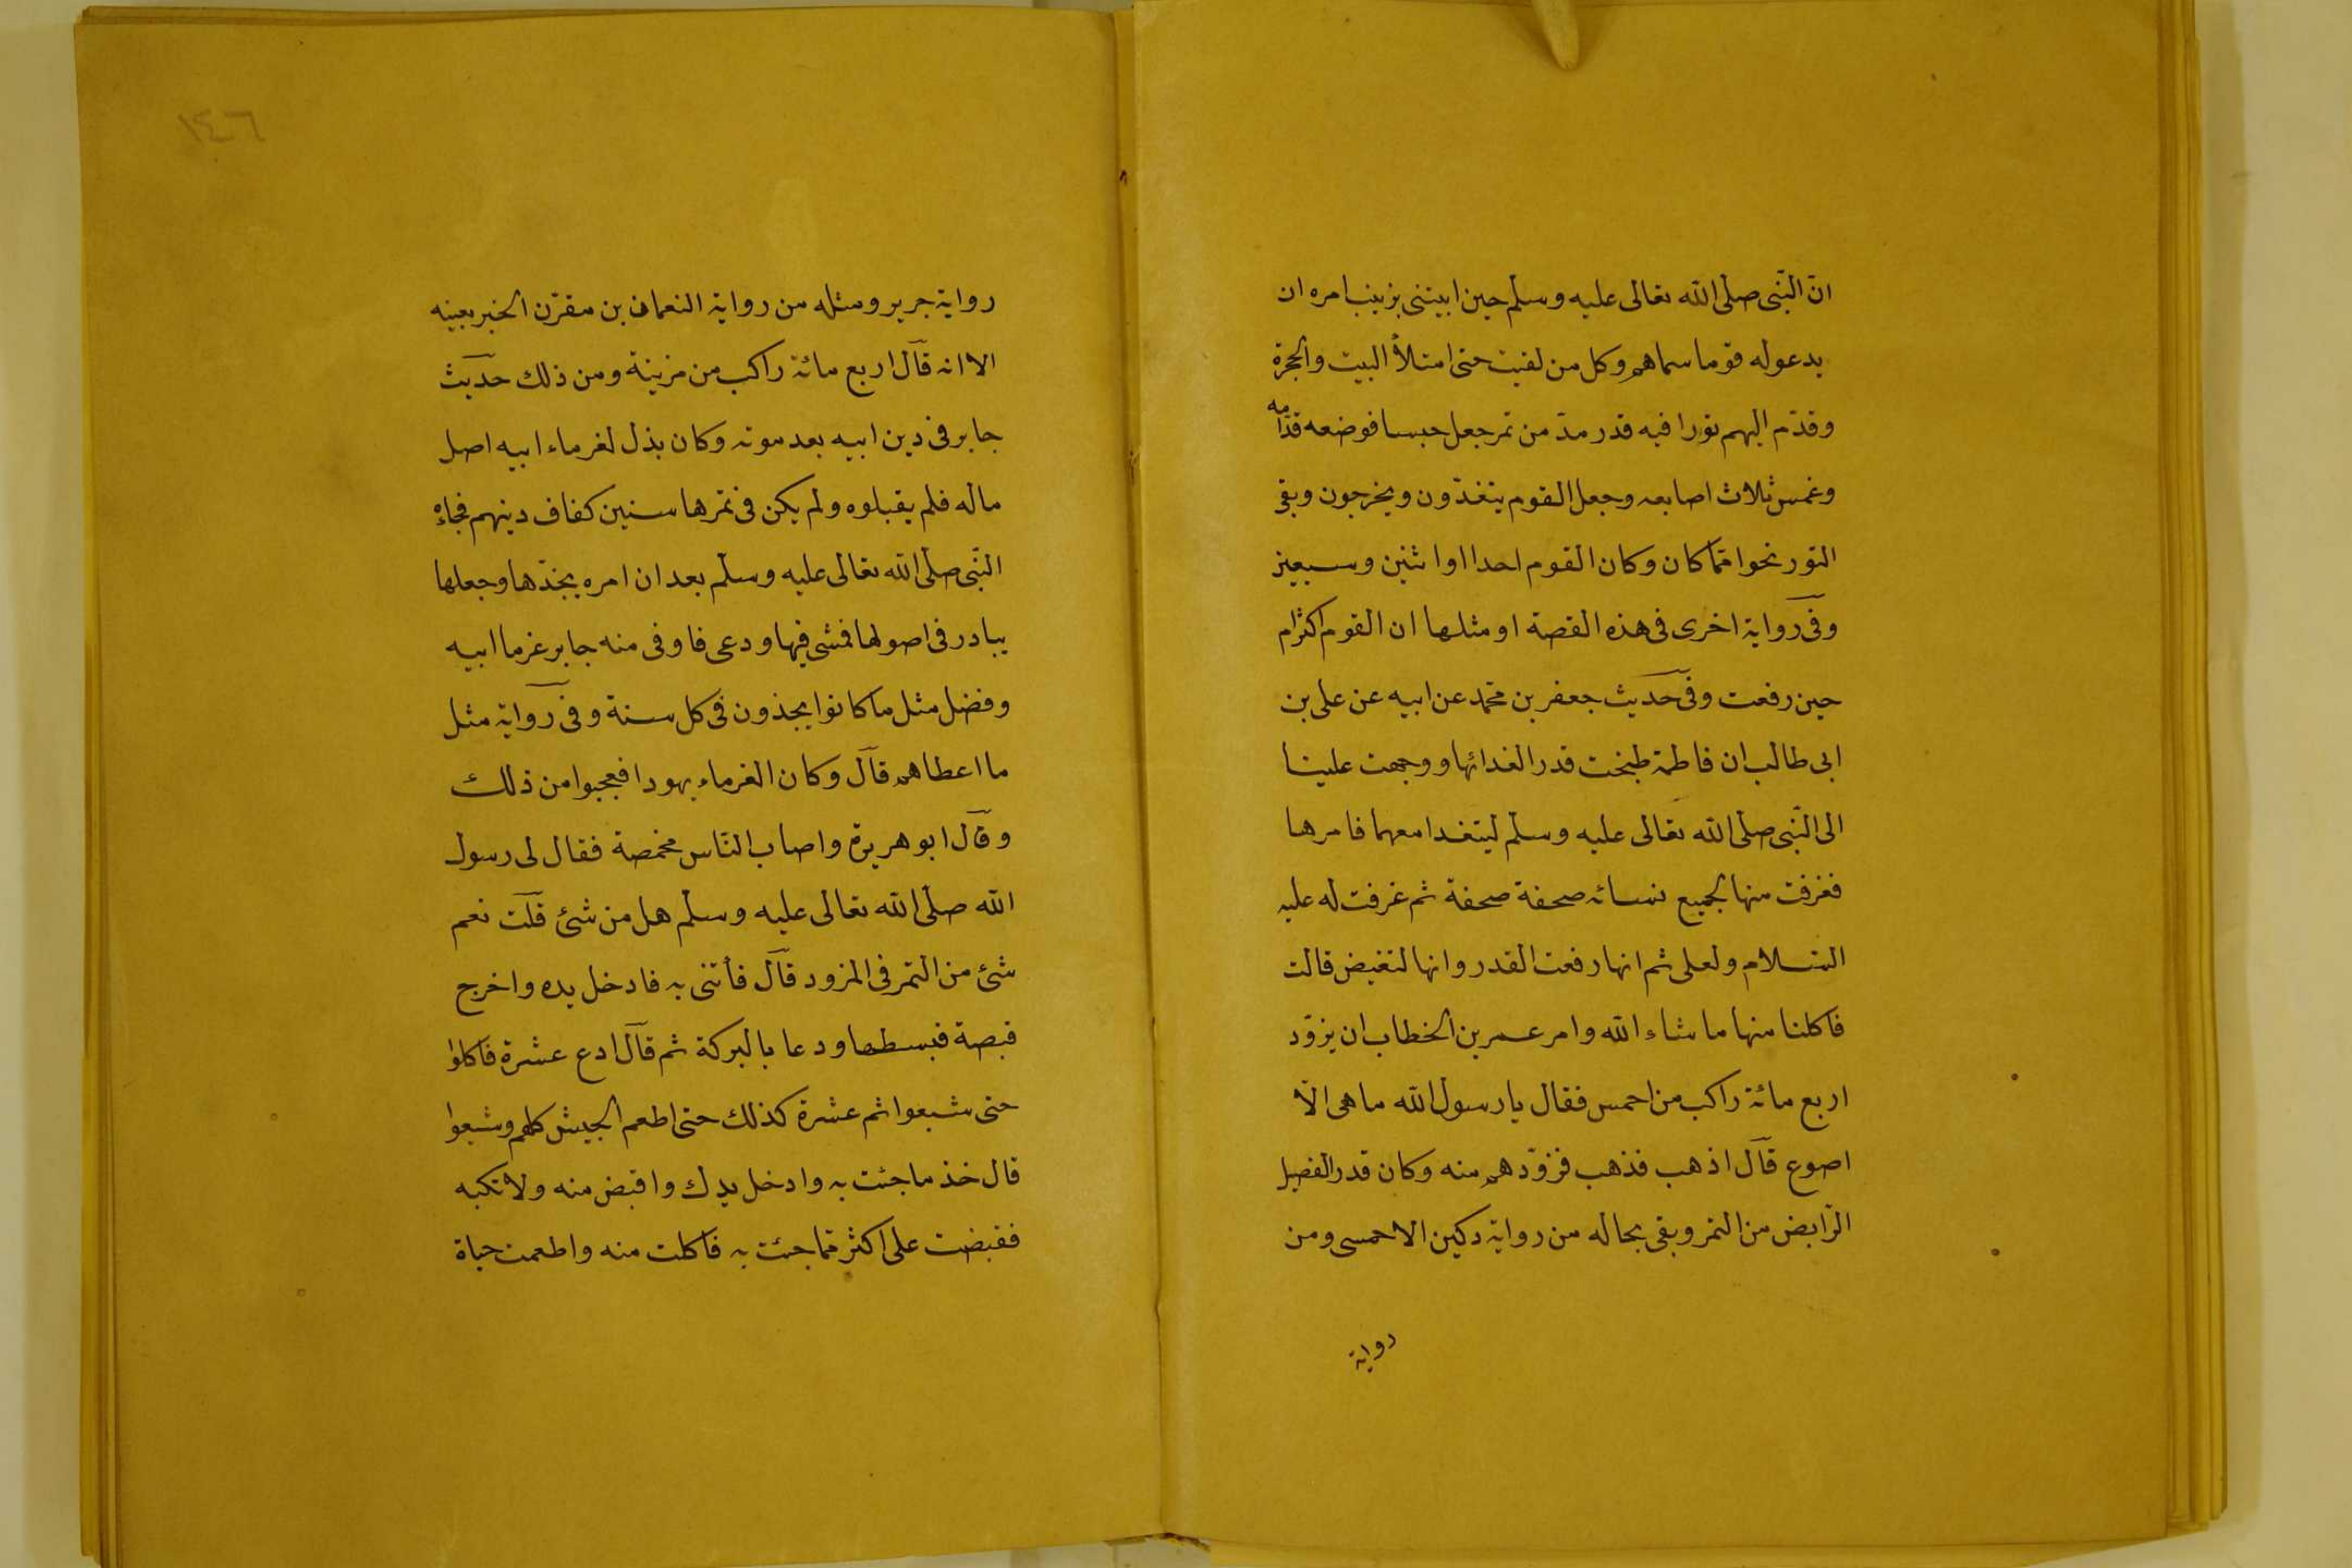 انّ النّبى صلّى الله تعالى عليه وسلّم حين ابيتنى بزينب امره ان
يدعوله قوما سماهم وكل من لقيت حتى امتلأ البيت والحجرة
وقدّم اليهم تورا فيه قدر مدّ من تمر جعل حيسا فوضعه قدّامه
وغمس ثلاث اصابعه وجعل القوم يتغدّون ويخرجون وبقى
التور نحوا ممّا كان وكان القوم احدا او اثنين وسبعين
وفى رواية اخرى فى هذه القصة او مثلها ان القوم اكثر ام
حين رفعت وفى حديث جعفر بن محمّد عن ابيه عن على بن
ابى طالب ان فاطمة طبخت قدر الغدائها ووجهت علينا
الى النّبى صلّى الله تعالى عليه وسلّم ليتغدا معهما فامرها
فغرفت منها لجميع نسائه صحفة صحفة ثم غرفت له عليه
السّلام ولعلى ثم انها رفعت القدر وانها لتغيض قالت
فاكلنا منها ما شاء الله وامر عمر بن الخطاب ان يزوّد
اربع مائة راكب من احمس فقال يا رسول الله ما هى الّا
اصوع قال اذهب فذهب فزوّدهم منه وكان قدر الفصيل
الرّابض من التمر وبقى بحاله من رواية دكين الاحمسى ومن
رواية
١٤٦
رواية جرير ومثله من رواية النعمان بن مقرّن الخبر بعينه
الا انه قال اربع مائة راكب من مزينة ومن ذلك حديث
جابر فى دين ابيه بعد موته وكان بذل لغرماء ابيه اصل
ماله فلم يقبلوه ولم يكن فى تمرها سنين كفاف دينهم فجاءه
النّبى صلّى الله تعالى عليه وسلّم بعد ان امره بجذّها وجعلها
يبادر فى اصولها فمشى فيها ودعى فاوفى منه جابر غرما ابيه
وفضل مثل ما كانوا يجذون فى كل سنة وفى رواية مثل
ما اعطاهم قال وكان الغرماء يهودا فعجبوا من ذلك
وقال ابو هريرة واصاب النّاس مخمصة فقال لى رسول
الله صلّى الله تعالى عليه وسلّم هل من شئ قلت نعم
شئ من التمر فى المزود قال فأتنى به فادخل يده واخرج
قبصة فبسطها ودعا بالبركة ثم قال ادع عشرة فاكلوا
حتى شبعوا ثم عشرة كذلك حتى اطعم الجيش كلهم وشبعوا
قال خذ ما جئت به وادخل يدك واقبض منه ولا تكبه
فقبضت على اكثر ممّا جئت به فاكلت منه واطعمت حياة